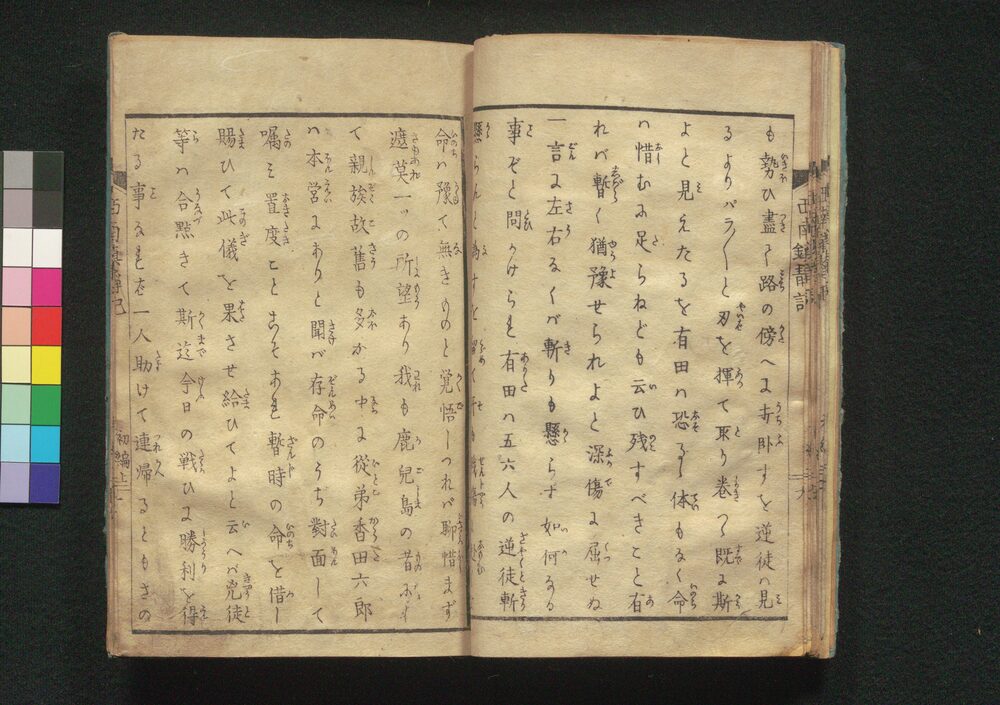 も勢ひ盡て路の傍へに打臥すを逆徒ハ見
るよりバラ〳〵と刃を揮て取り巻つ既に斯
よと見えたるを有田ハ恐るゝ体もなく命
ハ惜むに足らねども云ひ残すべきこと有
れバ暫く猶豫せられよと深傷に屈せぬ
一言に左右なくバ斬りも懸らず如何なる
事ぞと問かけられ有田ハ五六人の逆徒斬
懸らんと
命ハ豫て無きものと覚悟しつれバ聊惜まず
遮莫一ッの所望あり我も鹿兒島の昔
て親族故舊も多かる中に從弟香田六郎
ハ本営にありと聞バ存命のうち對面して
嘱ミ置度ことこそあれ暫時の命を借し
賜ひて此儀を果させ給ひてよと云へバ兇徒
等ハ合點きて斯迄今日の戦ひに勝利を得
たる事なれバ一人助けて連帰るともさの
西南
初編上